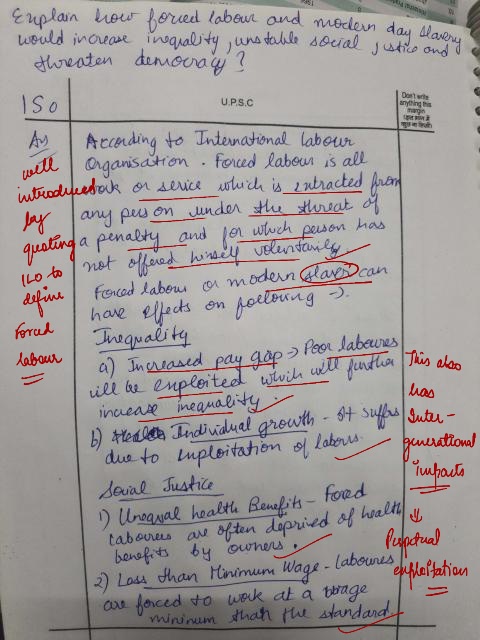 Explain how forced labour and modern day slavery
would increase inequality, unstable social justice and
threaten democracy?
150
U.P.S.C
Don't write
anything this
margin
Ans
According to International labour
Organisation. Forced labour is all
work or serice which is extracted from
any person under the threat of
a penalty and for which person has
not offered himself voluntarily.
Forced labour or modern slavery can
have effects on following →.
Inequality
a) Increased pay gap → Poor laboures
will be exploited which will further
increase inequality.
b) Individual growth - It suffers
due to exploitation of labours.
Social Justice
1) Unequal health Benefits - Forced
labourers are often deprived of health
benefits by owners.
2) Less than Minimum Wage - laboures
are forced to work at a wage
minimum than the standard
well
introduced
by
quoting
ILO to
define
Forced
labour
This also
has
Inter-
generational
impacts
↓
Perpetual
exploitation